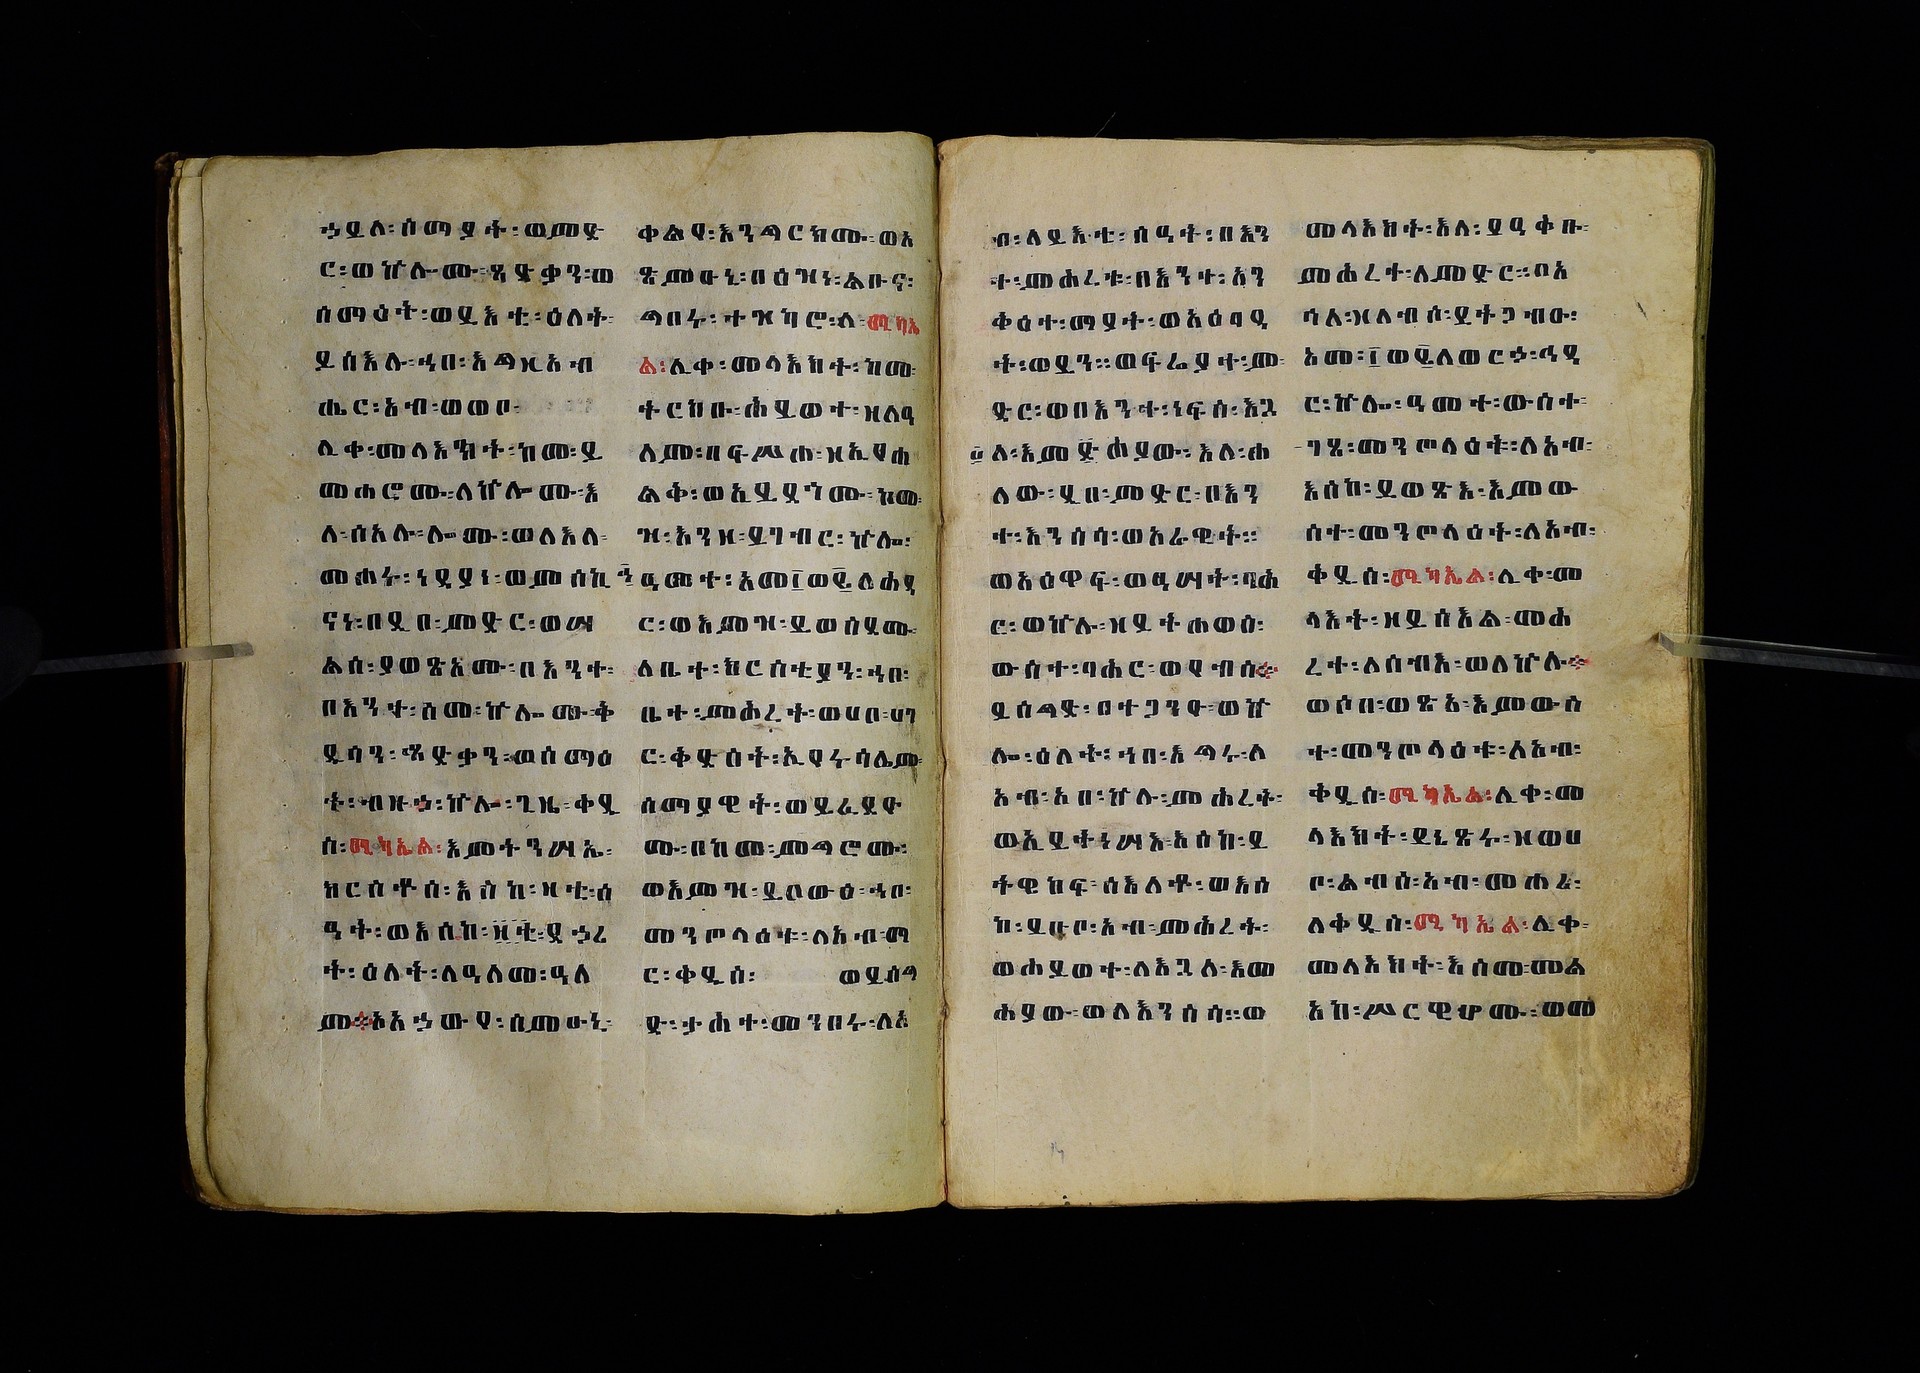 ኃይለ፡ሰማያት፡ወምድ
ር፡ወኵሉ፡ሙ፡ጻድቃን፡ወ
ሰማዕት፡ወይእቲ፡ዕለት፡
ይሰእሉ፡ኀበ፡እግዚአብ
ሔር፡አብ፡ወወቦ፡
ሊቀ፡መላእክት፡ከመ፡ይ
መሐሮሙ፡ለኵሎሙ፡እ
ለ፡ሰአሉ፡ሎሙ፡ወለእለ፡
መሐሩ፡ነዳያነ፡ወምስኪ
ናነ፡በዲበ፡ምድር፡ወሣ
ልስ፡ያወጽአሙ፡በእንተ፡
በእንተ፡ስመ፡ኵሎሙ፡ቅ
ዱሳን፡ጻድቃን፡ወሰማዕ
ት፡ብዙኃ፡ኵሉ፡ጊዜ፡ቀዲ
ስ፡ሚካኤል፡እምትንሣኤ፡
ክርስቶስ፡እስከ፡ዛቲ፡ሰ
ዓት፡ወእስከ፡ዛቲ፡ደኃሪ
ት፡ዕለት፡ለዓለመ፡ዓለ
ም፡አአኃውየ፡ስምዑኒ፡
ቀልየ፡እንግርክሙ፡ወአ
ጽምዑኒ፡በዕዝነ፡ልቡና፡
ግበሩ፡ተዝካሮ፡ለሚካኤ
ል፡ሊቀ፡መላእክት፡ከመ፡
ትርከቡ፡ሕይወተ፡ዘለዓ
ለም፡በፍሥሐ፡ዘኢየሐ
ልቅ፡ወኢይደኀሙ፡ከመ፡
ዝ፡እንዘ፡ይገብር፡ኵሎ፡
ዓመተ፡አመ፲ወ፪ለሕዳ
ር፡ወእምዝ፡ይወስዲሙ፡
ለቤተ፡ክርስቲያን፡ኀበ፡
ቤተ፡ምሕረት፡ወሀበ፡ሀገ
ር፡ቅድስት፡ኢየሩሳሌም፡
ሰማያዊት፡ወይሬእየዎ
ሙ፡በከመ፡ምግሮሙ፡
ወእምዝ፡ይበውዕ፡ኀበ፡
መንጦላዕቱ፡ለአብ፡ማ
ር፡ቅዱስ፡ ወይሰግ
ድ፡ታሕተ፡መንበሩ፡ለአ
ብ፡ለይእቲ፡ሰዓት፡በእን
ተ፡ምሕረቱ፡በእንተ፡አን
ቅዕተ፡ማያት፡ወአዕባዲ
ት፡ወይን፡፡ወፍሬያተ፡ም፡
ድር፡ወበእንተ፡ነፍሰ፡እጓ
ለ፡እመሕያው፡እለ፡ሐ
ለው፡ዲበ፡ምድር፡በእን
ተ፡እንስሳ፡ወአራዊት፡፡
ወአዕዋፍ፡ወዓሣት፡ባሕ
ር፡ወኵሉ፡ዘይትሐወስ፡
ውስተ፡ባሕር፡ወየብስ፡
ይሰግድ፡በተጋንዮ፡ወኵ
ሎ፡ዕለት፡ኀበ፡እግሩ፡ለ
አብ፡አበ፡ኵሉ፡ምሕረት፡
ወኢይትነሣእ፡እስከ፡ይ
ትዌከፍ፡ስእለቶ፡ወእስ
ከ፡ይሁቦ፡አብ፡ምሕረት፡
ወሐይወተ፡ለእጓለ፡እመ
ሕያው፡ወለእንስሳ፡፡ወ
መላእክት፡እለ፡ያዓቅቡ፡
ምሐረተ፡ለምድር፡፡በአ
ኅለ፡ዘለብሰ፡ይትጋብኡ፡
አመ፡፲ወ፪ለወርኃ፡ኅዳ
ር፡ኵሎ፡ዓመተ፡ውስተ፡
ገጸ፡መንጦላዕት፡ለአብ፡
እስከ፡ይወጽእ፡እምው
ስተ፡መንጦላዕት፡ለአብ፡
ቅዱስ፡ሚካኤል፡ሊቀ፡መ
ላእት፡ዘይስእል፡መሐ
ረተ፡ለሰብእ፡ወለኵሉ፡
ወሶበ፡ወጽአ፡እምውስ
ተ፡መንጦላዕቱ፡ለአብ፡
ቅዱስ፡ሚካኤል፡ሊቀ፡መ
ላእክት፡ይኔጽሩ፡ዘወሀ
ቦ፡ልብሰ፡አብ፡መሐሪ፡
ለቅዱስ፡ሚካኤል፡ሊቀ፡
መላእክት፡እስመ፡መል
አከ፡ሥርዊሆሙ፡ወመ